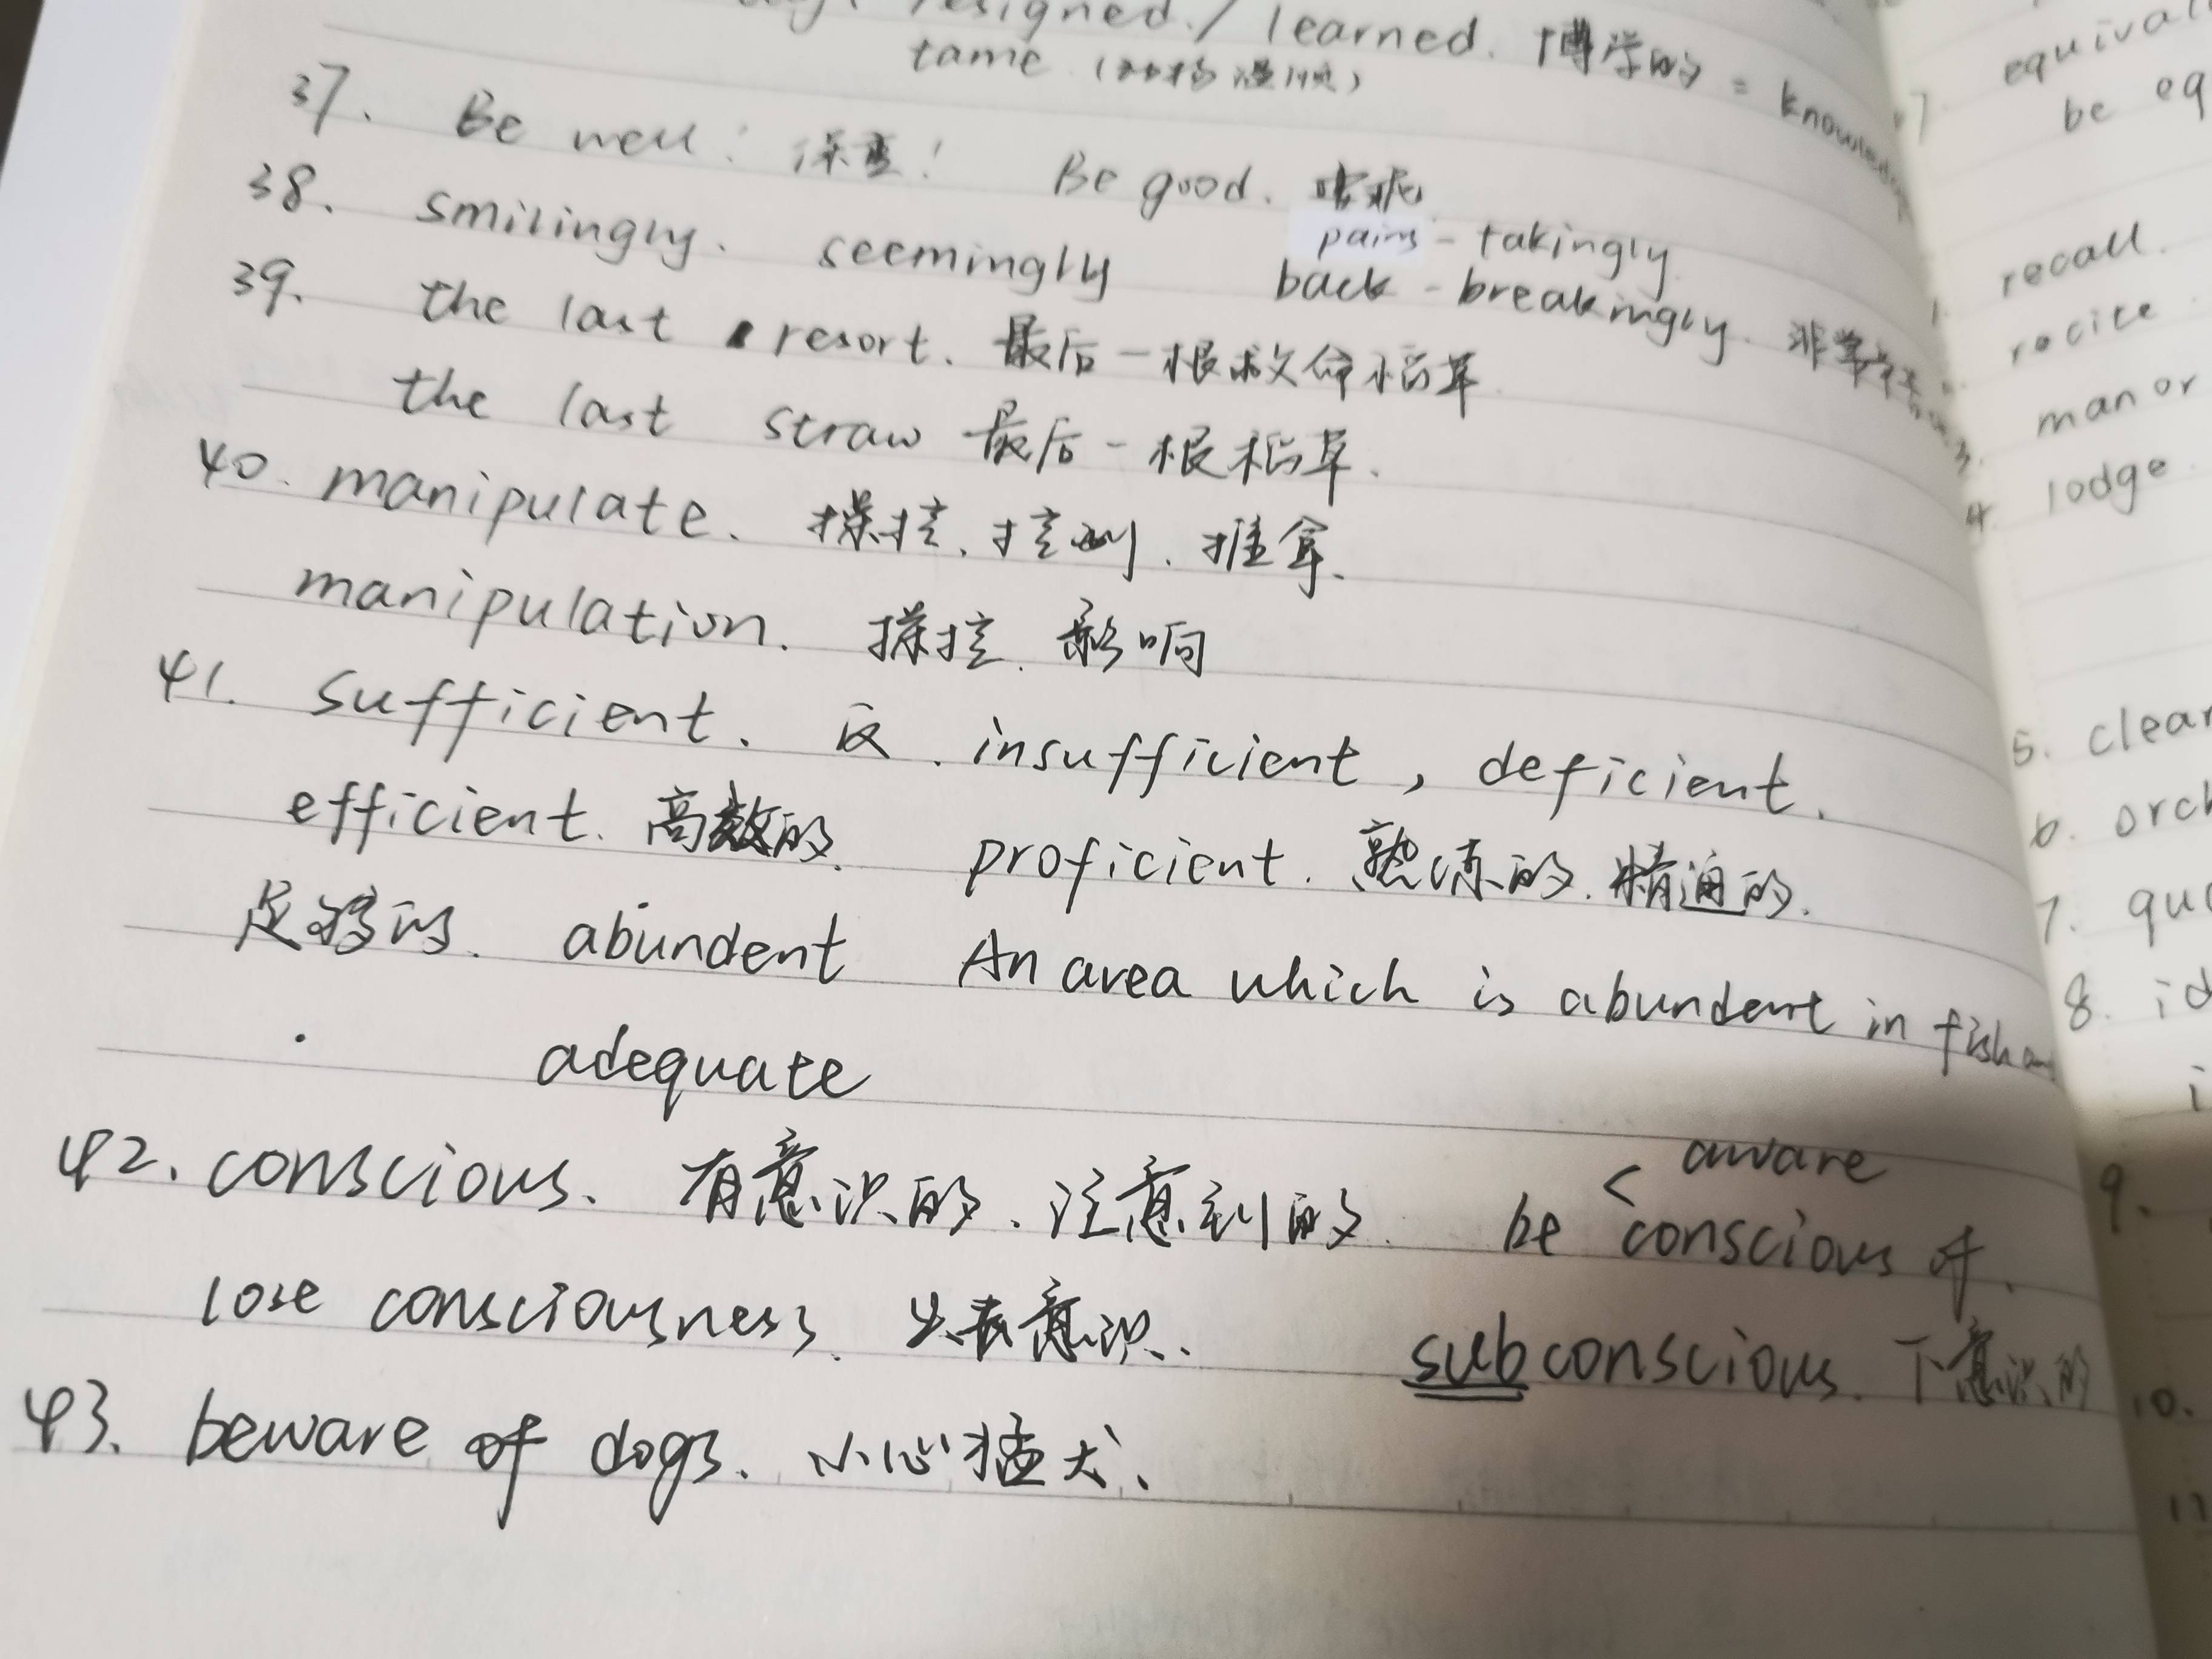 resigned. / learned. 博学的 =
tame
37. Be well! 保重! Be good.
38. smilingly. seemingly pains - takingly.
back - breakingly. 非常
39. the last resort. 最后一根救命稻草.
the last straw 最后一根稻草.
40. manipulate. 操控. 控制. 推拿.
manipulation. 操控. 影响
41. sufficient. 反. insufficient, deficient.
efficient. 高效的. proficient. 熟练的. 精通的.
足够的. abundent An area which is abundent in fish
adequate
42. conscious. 有意识的. 注意到的. be < aware
conscious of.
lose consciousness. 失去意识. subconscious. 下意识的
43. beware of dogs. 小心猛犬.
be
recall.
recite
manor
4. lodge
5. clear
6.
7.
8.
9.
10.
11